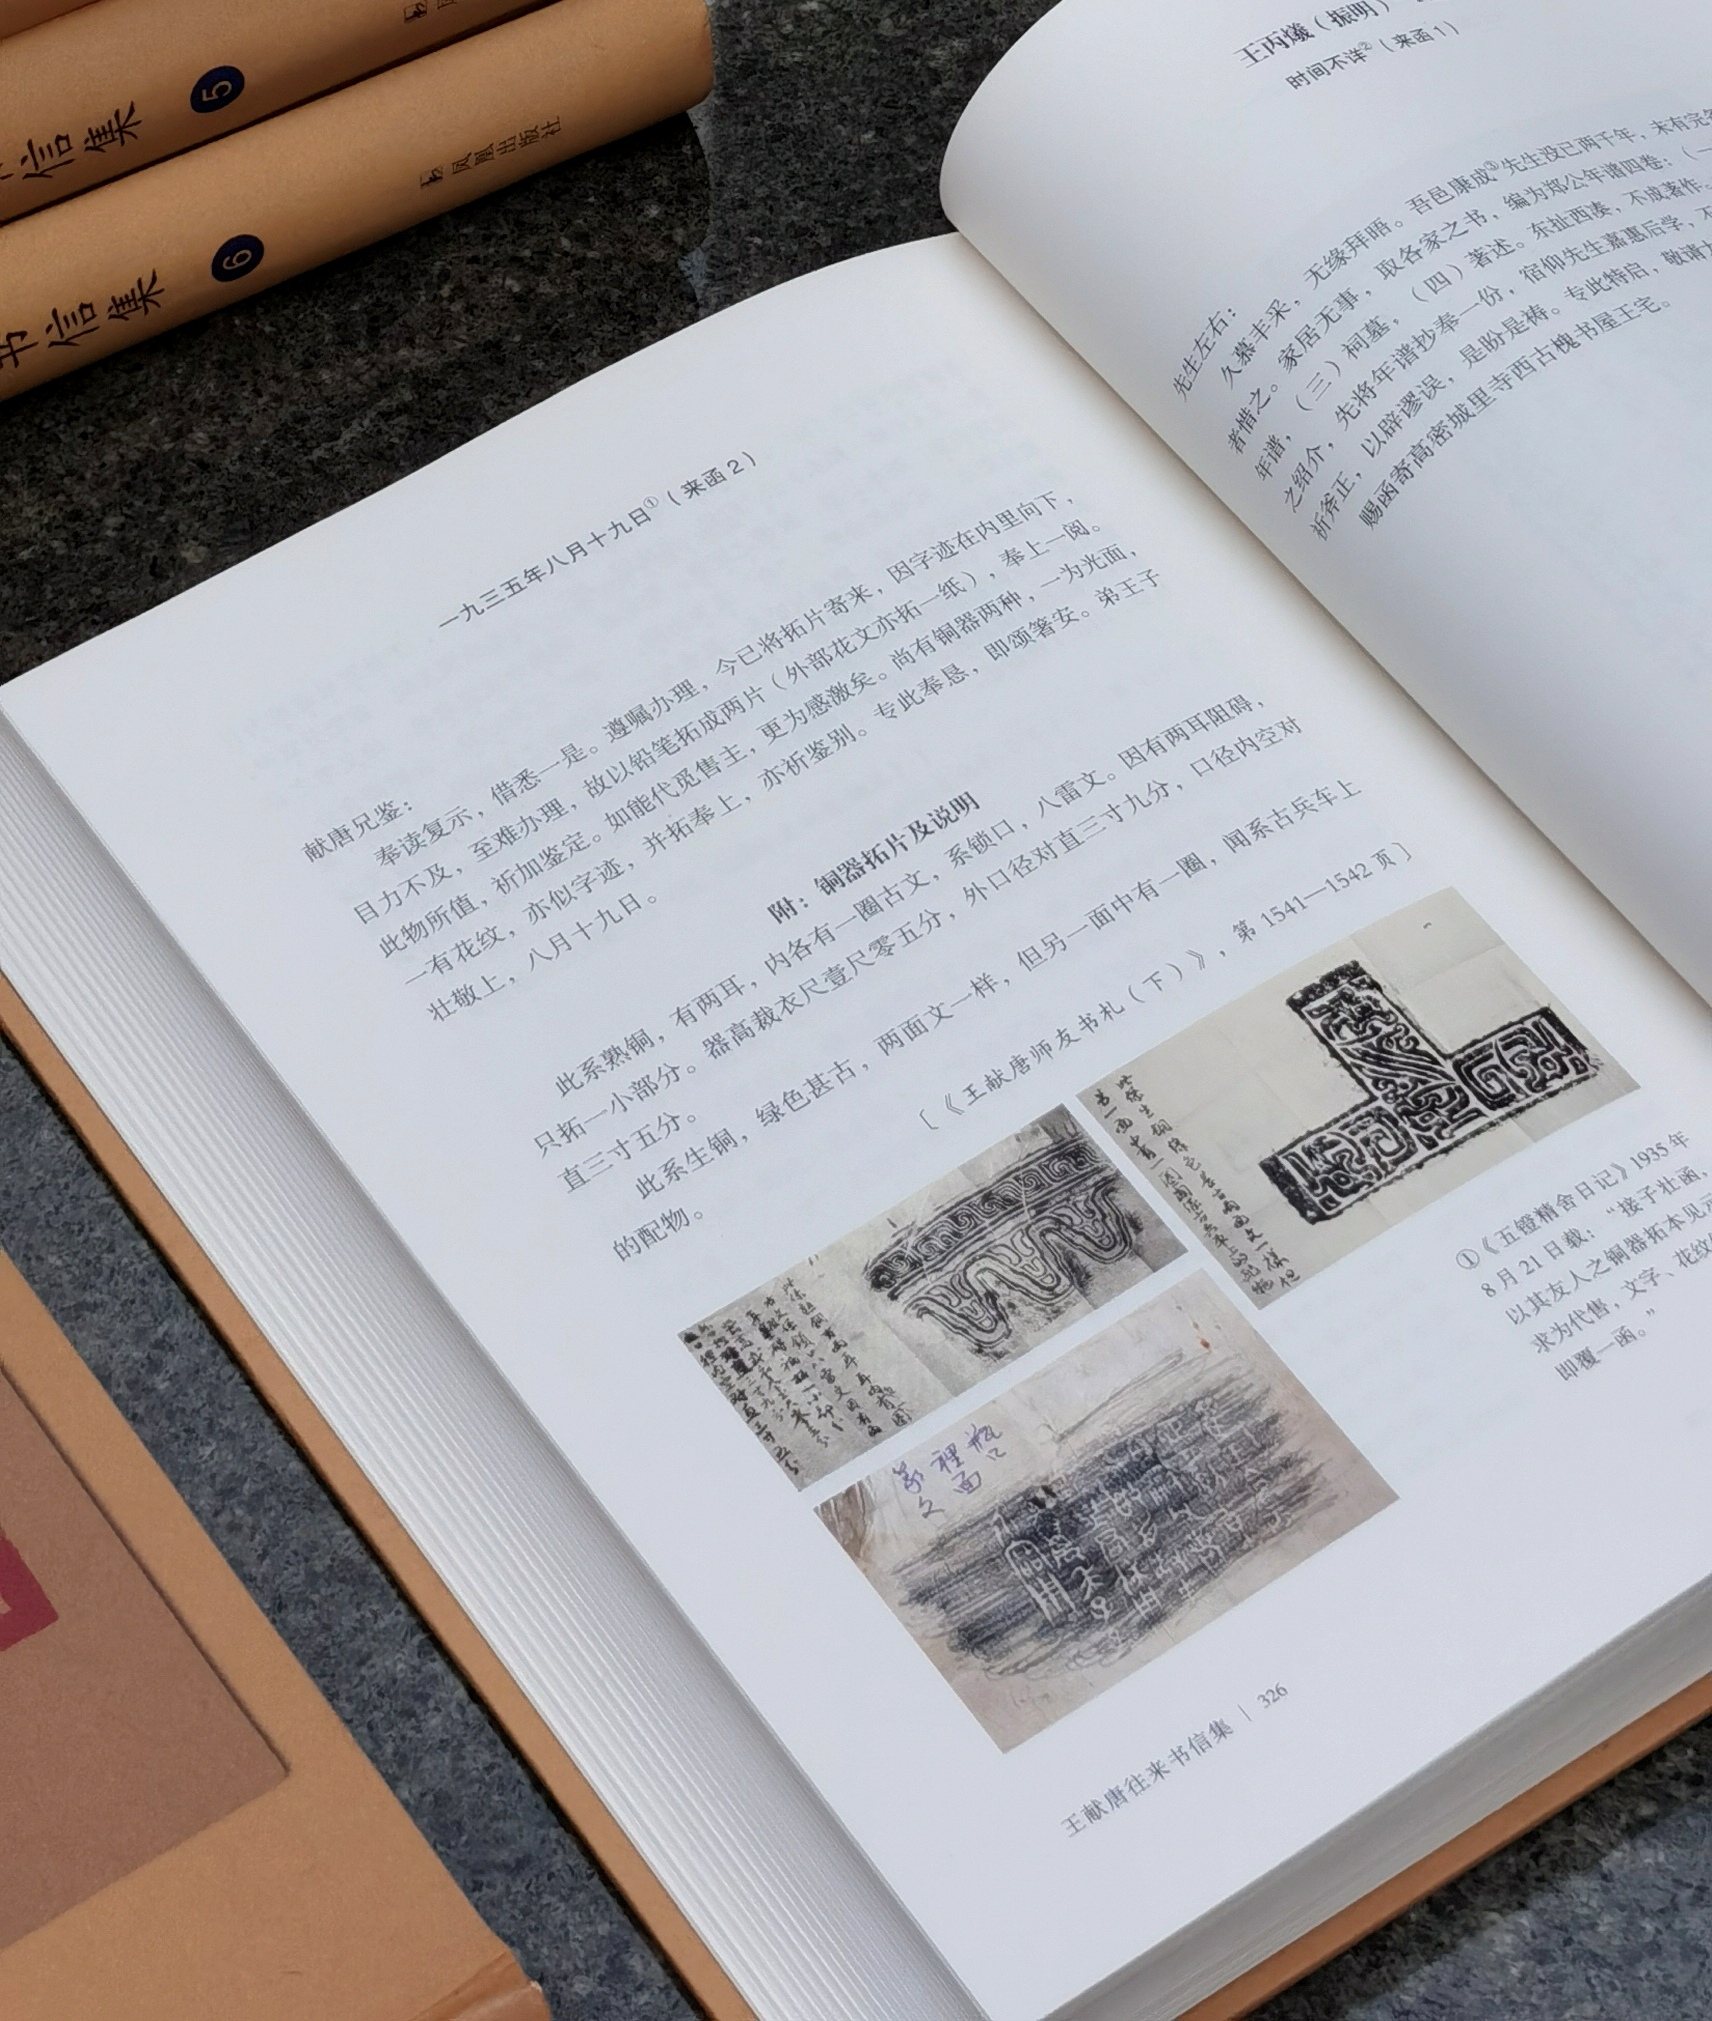 信集
5
书信集
6
凤凰出版社
一九三五年八月十九日①（来函 2）
献唐兄鉴：
奉读复示，借悉一是。遵嘱办理，今已将拓片寄来，因字迹在内里向下，
目力不及，至难办理，故以铅笔拓成两片（外部花文亦拓一纸），奉上一阅。
此物所值，祈加鉴定。如能代觅售主，更为感激矣。尚有铜器两种，一为光面，
一有花纹，亦似字迹，并拓奉上，亦祈鉴别。专此奉恳，即颂箸安。弟王子
壮敬上，八月十九日。
附：铜器拓片及说明
此系熟铜，有两耳，内各有一圈古文，系锁口，八雷文。因有两耳阻碍，
只拓一小部分。器高裁衣尺壹尺零五分，外口径对直三寸九分，口径内空对
直三寸五分。
此系生铜，绿色甚古，两面文一样，但另一面中有一圈，闻系古兵车上
的配物。
［《王献唐师友书札（下）》，第 1541—1542 页］
此系生铜绿色甚古两面文一样但
另一面中有一圈闻系古兵车上的配物
瓶口
裡面
篆文
①《五镫精舍日记》1935 年
8 月 21 日载：“接子壮函，
以其友人之铜器拓本见
求为代售，文字、花纹
即覆一函。”
王献唐往来书信集｜326
王丙爔（振明）
时间不详②（来函 1）
先生左右：
久慕丰采，无缘拜晤。吾邑康成③先生没已两千年，未有完
者惜之。家居无事，取各家之书，编为郑公年谱四卷：（一
年谱，（三）祠墓，（四）著述。东扯西凑，不成著作。
之绍介，先将年谱抄奉一份，宿仰先生嘉惠后学，不
祈斧正，以辟谬误，是盼是祷。专此特启，敬请
赐函寄高密城里寺西古槐书屋王宅。